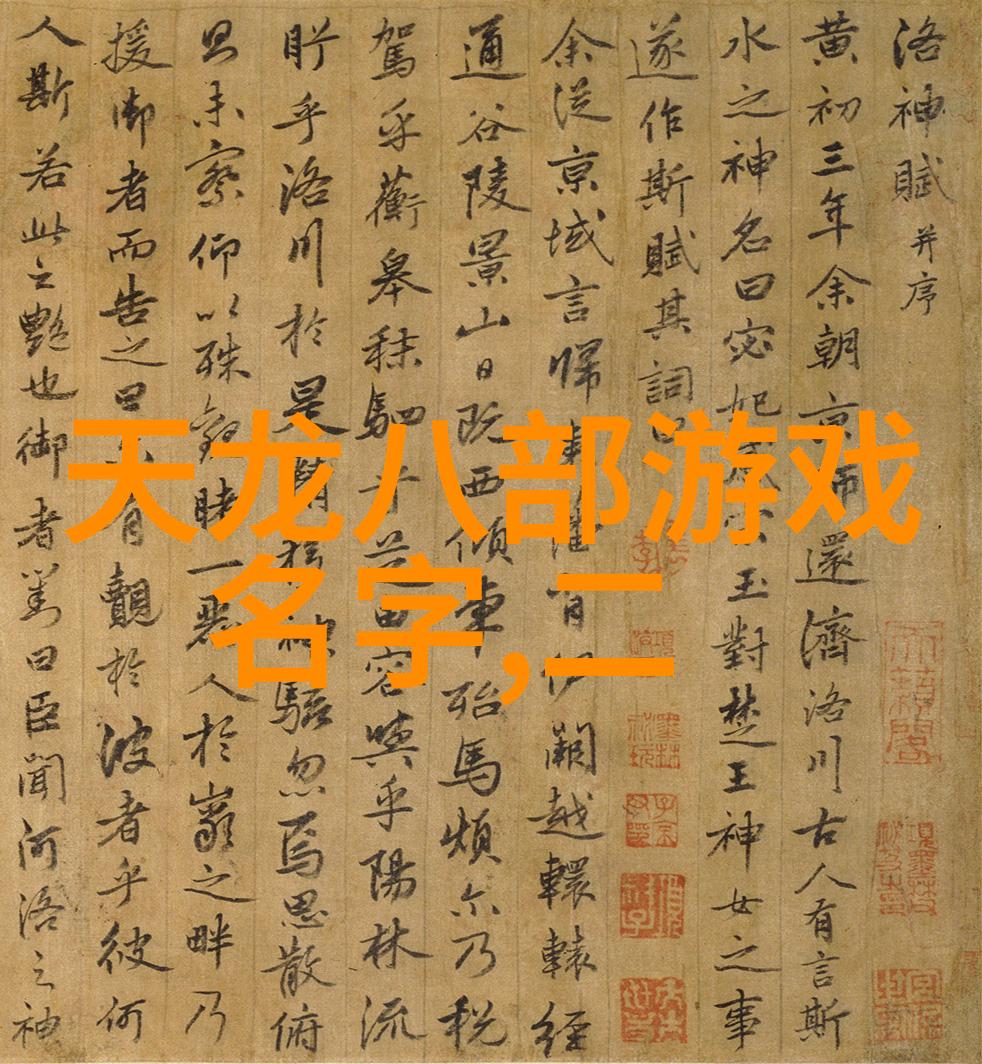 洛神賦并序
黃初三年余朝京師還濟洛川古人有言斯
水之神名曰宓妃感宋玉對楚王神女之事
遂作斯賦其詞曰
余從京域言歸東藩背伊闕越轘轅經
通谷陵景山日既西傾車殆馬煩尓乃稅
駕乎蘅皋秣駟乎芝田容與乎陽林流
眄乎洛川於是精移神駭忽焉思散俯
則未察仰以殊觀睹一麗人於巖之畔乃
援御者而告之曰尓有覿於彼者乎彼何
人斯若此之艷也御者對曰臣聞河洛之神
天龙八部游戏
名字,二